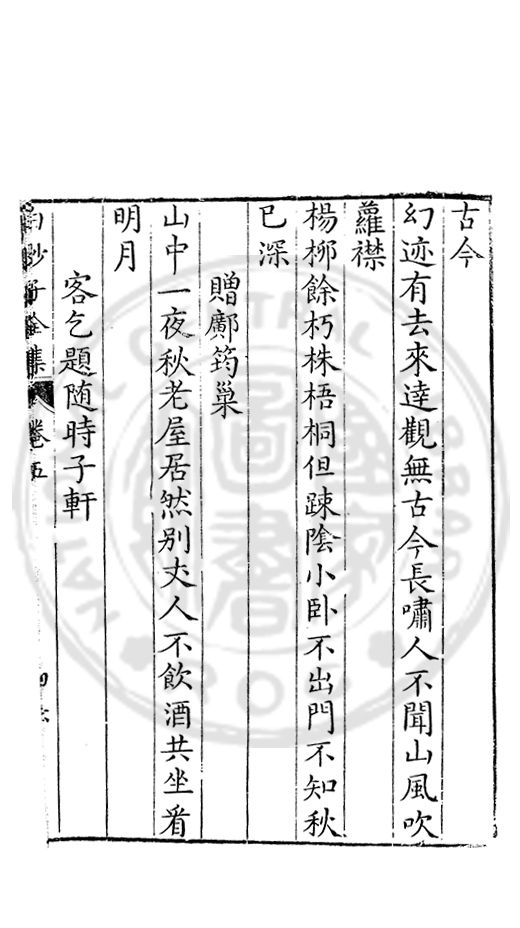 古今
幻迹有去來達觀無古今長嘯人不聞山風吹
蘿襟
楊栁餘朽株梧桐但踈陰小卧不出門不知秋
已深
贈鄺筠巢
山中一夜秋老屋居然别丈人不飲酒共坐看
明月
客乞題随時子軒
白沙子全集 卷五